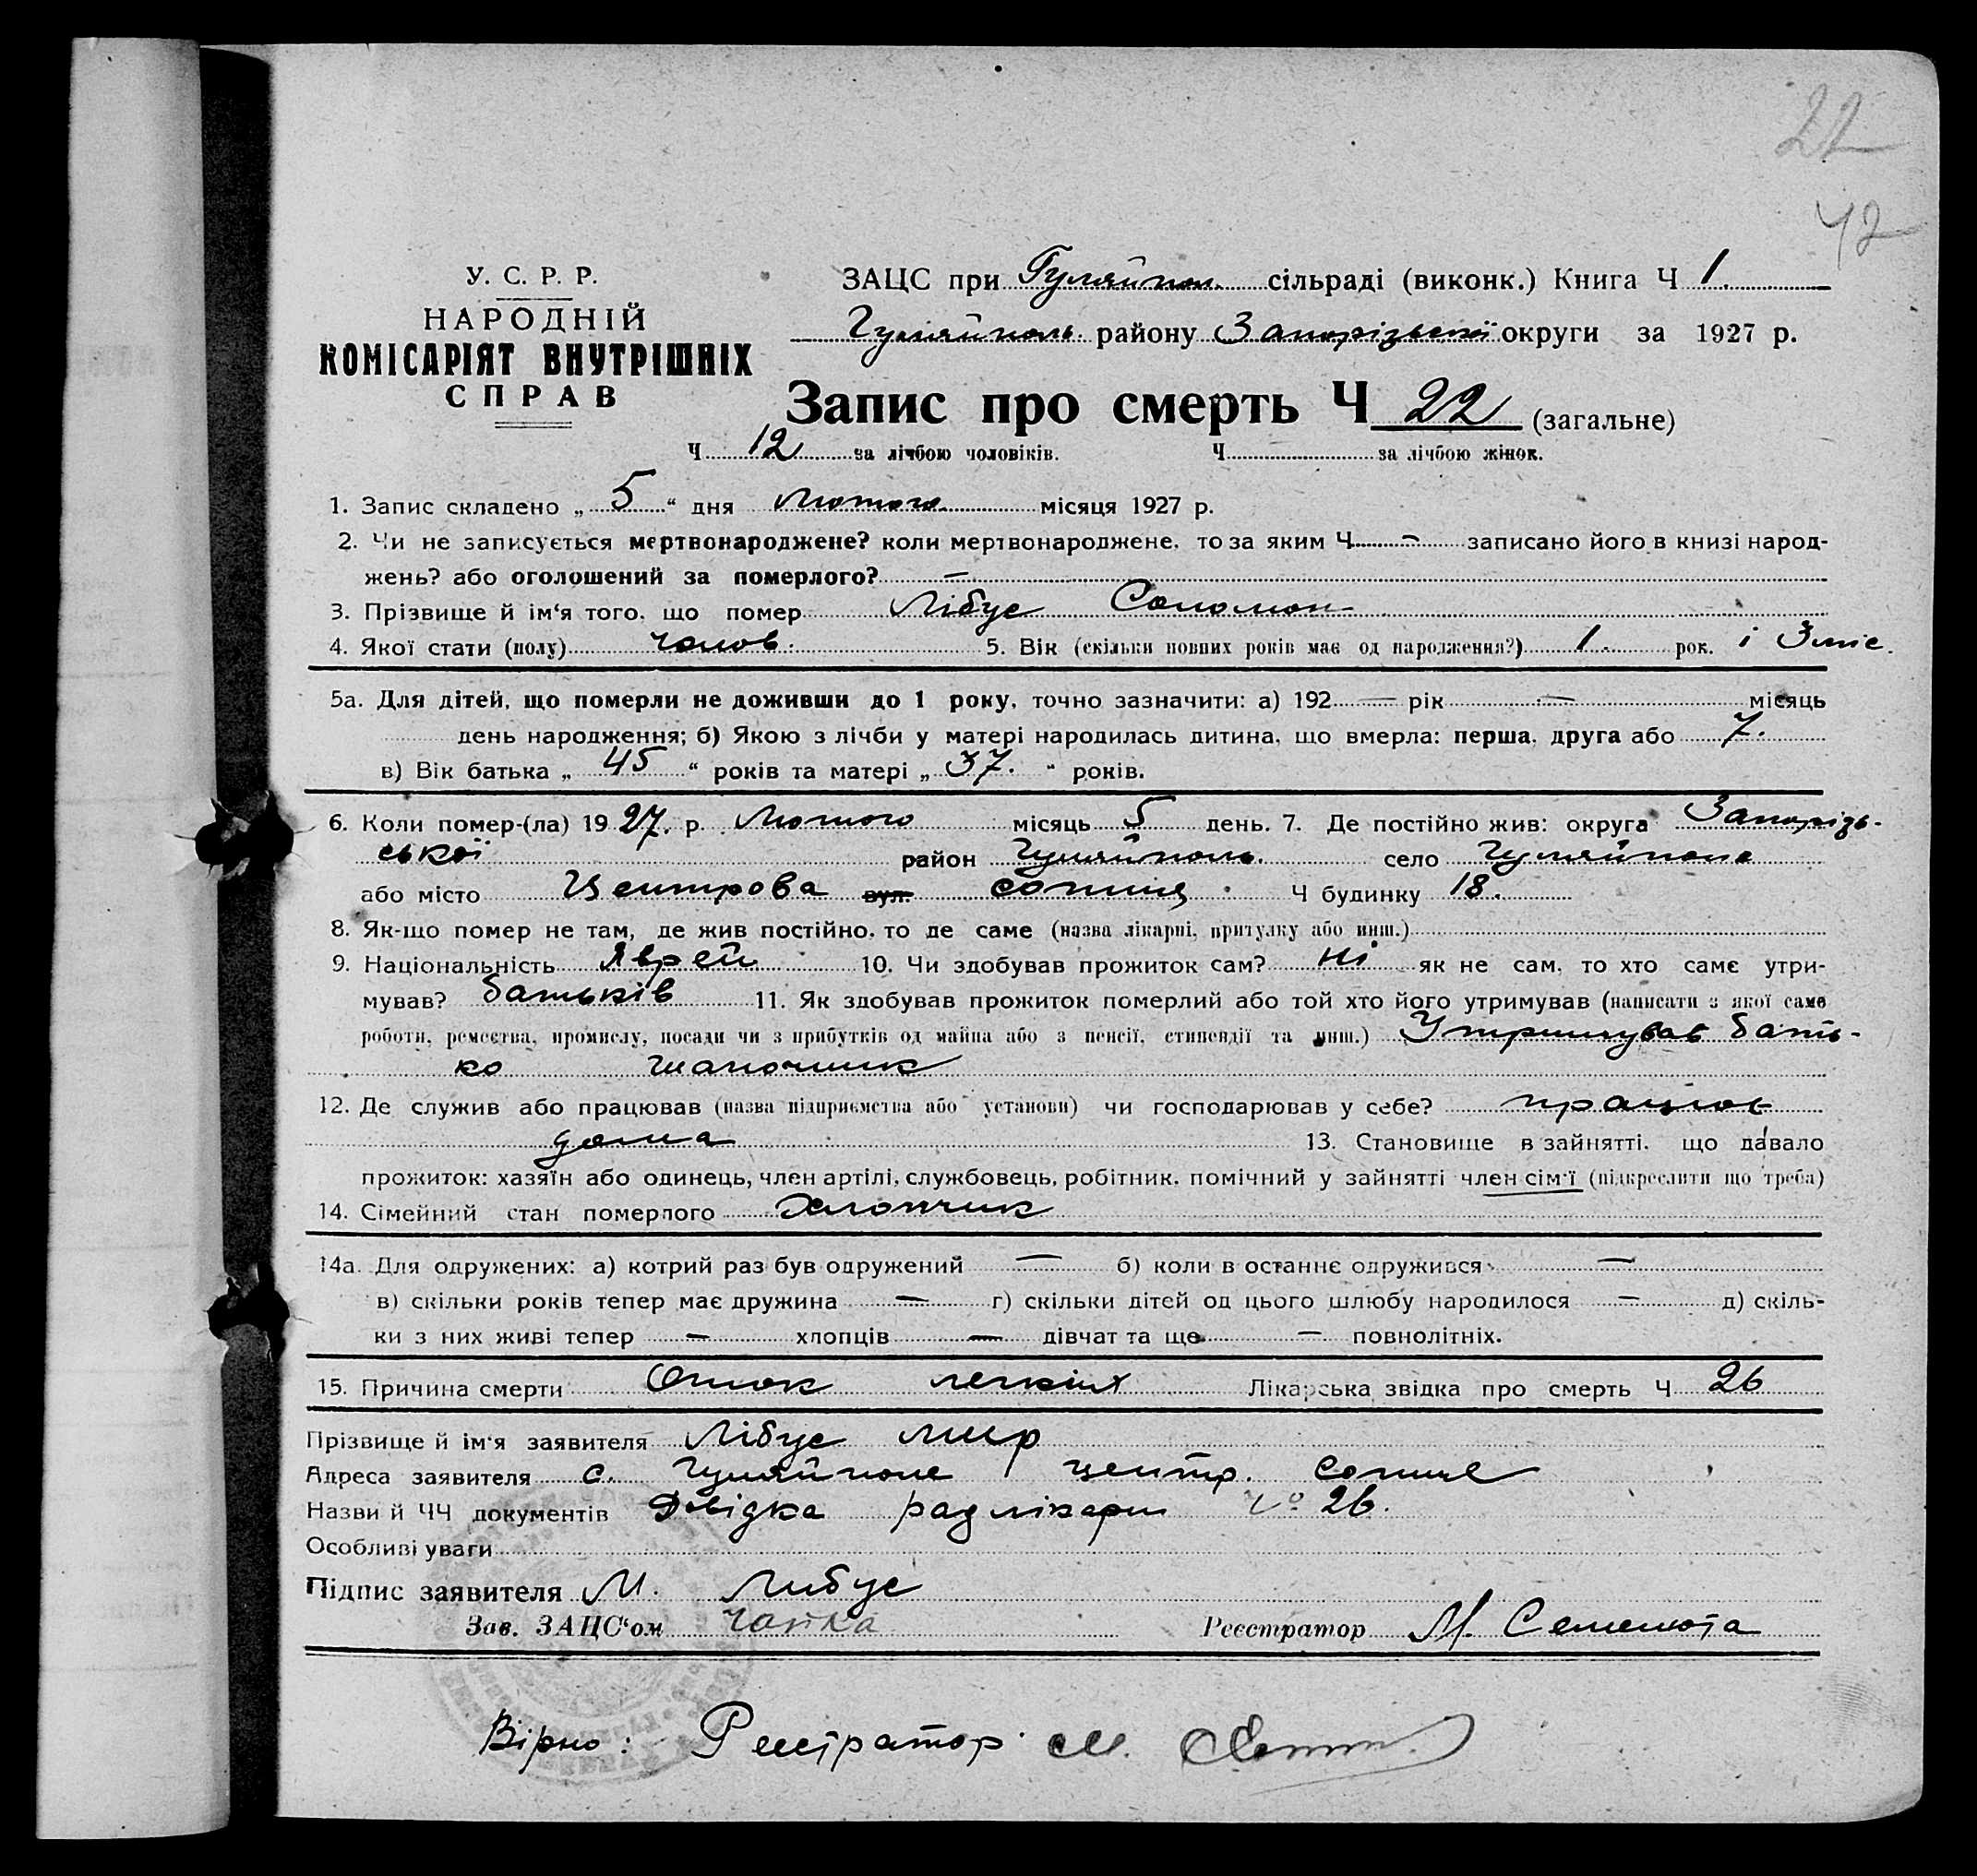 22
42
У. С. Р. Р.
НАРОДНІЙ
КОМІСАРІЯТ ВНУТРІШНІХ
СПРАВ
ЗАЦС при Гуляйпол. сільраді (виконк.) Книга Ч 1.
Гуляйполь району Запорізької округи за 1927 р.
Запис про смерть Ч 22 (загальне)
Ч 12 за лічбою чоловіків. Ч за лічбою жінок.
1. Запис складено „ 5 “ дня Лютого місяця 1927 р.
2. Чи не записується мертвонароджене? коли мертвонароджене, то за яким Ч — записано його в книзі народ-
жень? або оголошений за померлого? —
3. Прізвище й ім‘я того, що помер Лібус Соломон
4. Якої стати (полу) чолов. 5. Вік (скільки повних років має од народження?) 1. рок. і 3 міс.
5а. Для дітей, що померли не доживши до 1 року, точно зазначити: а) 192 — рік — місяць
день народження; б) Якою з лічби у матері народилась дитина, що вмерла: перша, друга або 7.
в) Вік батька „ 45 “ років та матері „ 37. “ років.
6. Коли помер-(ла) 19 27. р. Лютого місяць 5 день. 7. Де постійно жив: округа Запорізь-
ської район Гуляйполь. село Гуляйполе
або місто Центрова вул. сотня Ч будинку 18.
8. Як-що помер не там, де жив постійно, то де саме (назва лікарні, притулку або инш.)
9. Національність Яврей 10. Чи здобував прожиток сам? Ні як не сам, то хто саме утри-
мував? батьків 11. Як здобував прожиток померлий або той хто його утримував (написати з якої саме
роботи, ремества, промислу, посади чи з прибутків од майна або з пенсії, стипендії та инш.) Утримував бать-
ко шапошник
12. Де служив або працював (назва підприємства або установи) чи господарював у себе? працює
дома 13. Становище в зайнятті, що давало
прожиток: хазяїн або одинець, член артілі, службовець, робітник, помічний у зайнятті член сім‘ї (підкреслити що треба)
14. Сімейний стан померлого Хлопчик
14а. Для одружених: а) котрий раз був одружений — б) коли в останнє одружився —
в) скільки років тепер має дружина — г) скільки дітей од цього шлюбу народилося — д) скіль-
ки з них живі тепер — хлопців — дівчат та ще — повнолітніх.
15. Причина смерти Отьок легких Лікарська звідка про смерть Ч 26
Прізвище й ім‘я заявителя Лібус Мир
Адреса заявителя с. Гуляйполе центр. сотня
Назви й ЧЧ документів Довідка рад лікарні № 26.
Особливі уваги
Підпис заявителя М. Либус
Зав. ЗАЦС‘ом Чайка Реєстратор М. Семенюта
Вірно: Реєстратор М.